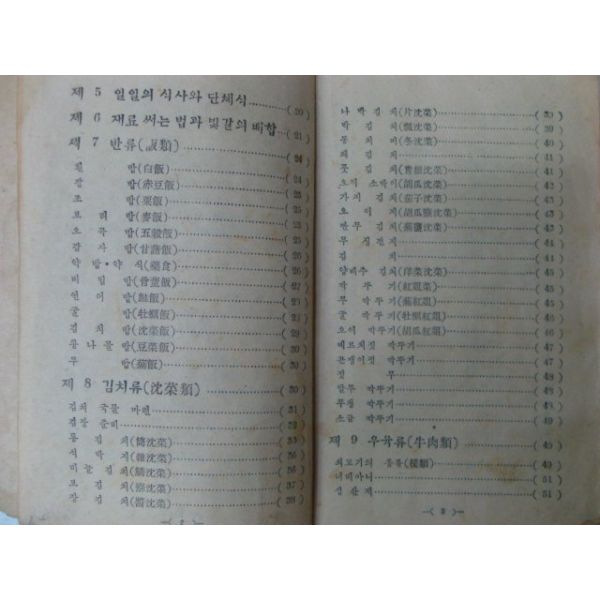 제 5 일일의 식사와 단체식 (20)
제 6 재료 써는 법과 빛갈의 배합 (21)
제 7 반류(飯類) (24)
흰 밥(白飯) (24)
팥 밥(赤豆飯) (24)
조 밥(粟飯) (25)
보리 밥(麥飯) (25)
오곡 밥(五穀飯) (25)
감자 밥(甘藷飯) (26)
약밥·약식(藥食) (26)
비빔 밥(骨董飯) (27)
연어 밥(鮭飯) (28)
굴 밥(牡蠣飯) (28)
김치 밥(沈菜飯) (29)
콩나물 밥(豆菜飯) (30)
무 밥(菁飯) (30)
제 8 김치류(沈菜類) (30)
김치 국물 마련 (31)
김장 준비 (32)
통김치(筒沈菜) (35)
석박지(雜沈菜) (36)
비늘김치(鱗沈菜) (36)
보김치 (37)
장김치(醬沈菜) (38)
나박김치(片沈菜) (39)
박김치(瓢沈菜) (39)
동치미(冬沈菜) (40)
채김치 (41)
풋김치(靑根沈菜) (41)
오이 소박이(胡瓜沈菜) (42)
가지김치(茄子沈菜) (42)
오이지(胡瓜鹽沈菜) (43)
반무김치 (43)
무짠지 (44)
김치 (44)
양배추 김치(洋菜沈菜) (45)
깍뚜기(紅俎菜) (45)
무 깍뚜기(菁紅俎) (45)
굴 깍뚜기(牡蠣紅俎) (46)
오이 깍뚜기(胡瓜紅俎) (46)
멸프치젓 깍뚜기 (47)
곤쟁이젓 깍뚜기 (47)
짓무 (48)
알무 깍뚜기 (48)
무청 깍뚜기 (48)
소금 깍뚜기 (49)
제 9 우육류(牛肉類) (49)
쇠고기의 종류(種類) (49)
너비아니 (51)
섭산적 (51)
3